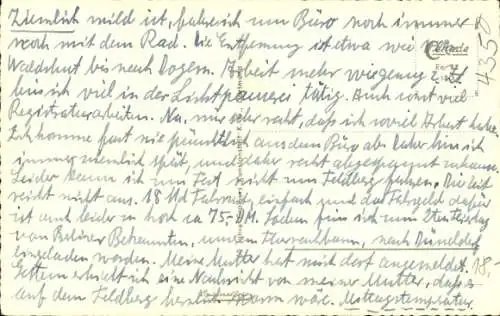 Ziemlich mild ist, fahre ich zum Büro noch immer
noch mit dem Rad. Die Entfernung ist etwa wie v.
Waldshut bis nach Dogern. Arbeit mehr wie genug. Z. Zt.
bin ich viel in der Lichtpauserei tätig. Auch sonst viel
Registraturarbeiten. Na, mir sehr recht, daß ich soviel Arbeit habe.
Ich komme fast nie pünktlich aus dem Büro ab. Daher bin ich
immer ziemlich spät, und daher recht abgespannt zuhause.
Leider kann ich zum Fest nicht zum Feldberg fahren. Die Zeit
reicht nicht aus. 18 Std Fahrzeit, einfach und das Fahrgeld dafür
ist auch leider zu hoch ca 75,- DM. Indem bin ich zum 2ten Feiertag
von Berliner Bekannten, nach
eingeladen worden. Meine Mutter hat mich dort angemeldet.
Gestern erhielt ich eine Nachricht von meiner Mutter, daß es
auf dem Feldberg warm wäre. Mittagstemperatur
18,-
4350